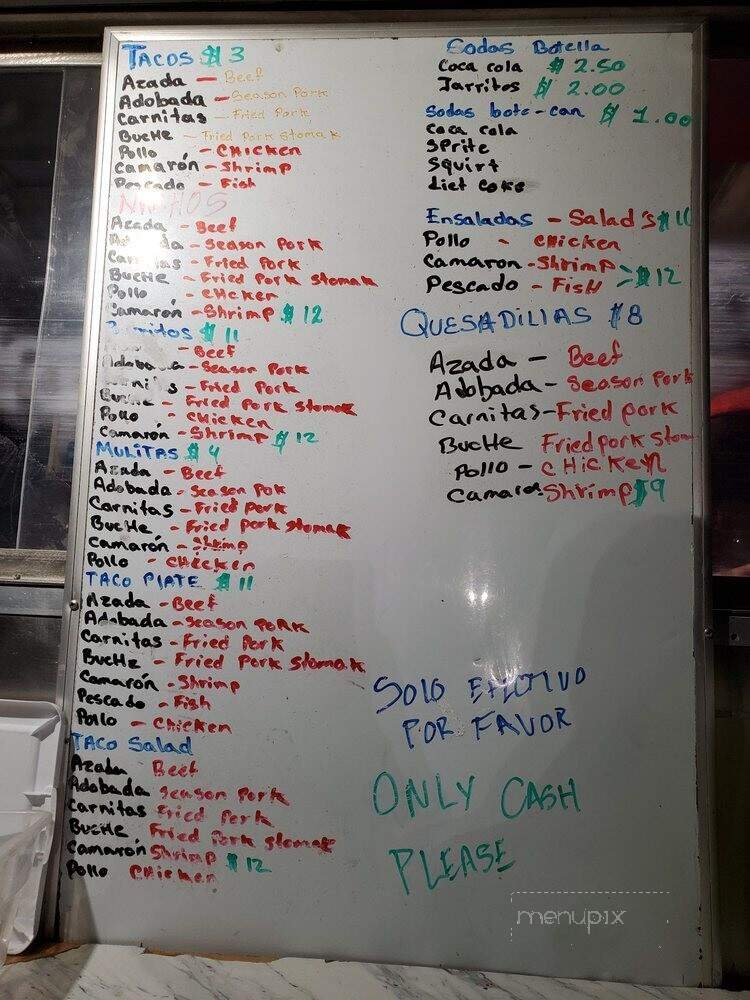 TACOS $3
Azada - Beef
Adobada - Season Pork
Carnitas - Fried Pork
Buche - Fried Pork Stomak
Pollo - Chicken
Camarón - Shrimp
Pescado - Fish
NACHOS
Azada - Beef
- Season Pork
- Fried Pork
Buche - Fried Pork Stomak
Pollo - Chcken
Camarón - Shrimp $12
Burritos $11
- Beef
Adobada - Season Pork
- Fried Pork
Buche - Fried Pork Stomak
Pollo - Chicken
Camarón - Shrimp $12
MULITAS $4
Azada - Beef
Adobada - Season Pok
Carnitas - Fried Pork
Buche - Fried Pork Stomak
Camarón - Shrimp
Pollo - Chicken
TACO PLATE $11
Azada - Beef
Adobada - Season Pork
Carnitas - Fried Pork
Buche - Fried Pork Stomak
Camarón - Shrimp
Pescado - Fish
Pollo - Chicken
TACO Salad
Azada Beef
Adobada Season Pork
Carnitas Fried Pork
Buche Fried Pork Stomak
Camarón Shrimp $12
Pollo Chicken
Sodas Botella
Coca cola $2.50
Jarritos $2.00
Sodas bote-can $1.00
Coca cola
Sprite
Squirt
Diet Coke
Ensaladas - Salad's $11
Pollo - Chicken
Camaron - Shrimp
Pescado - Fish > $12
QUESADILLAS $8
Azada - Beef
Adobada - Season Pork
Carnitas - Fried pork
Buche Fried pork Stom
Pollo - Chicken
Camaron Shrimp $9
SOLO EFECTIVO
POR FAVOR
ONLY CASH
PLEASE
menupix